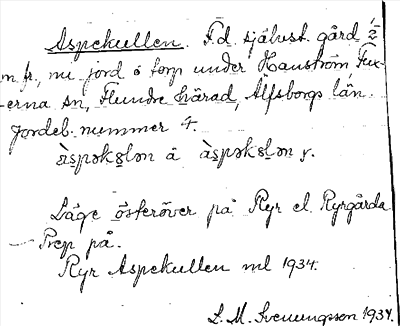 Aspekullen. F.d. självst. gård, 1/2
m fr, nu jord å torp under Hanström, Fux-
erna sn, Flundre härad, Älfsborgs län.
Jordeb. nummer 4.
àspəkələn å àspəkələn y.
Läge österöver på Ryr el. Ryrgårda
Prep på.
Ryr Aspekullen ml 1934.
L. M. Svenungsson 1934.